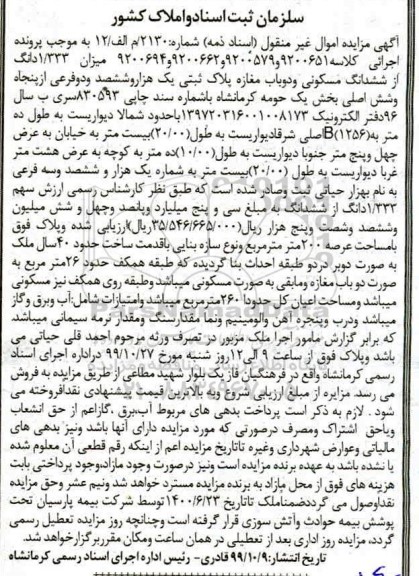 سازمان ثبت اسناد و املاک کشور
آگهی مزایده اموال غیر منقول (اسناد ذمه) شماره:۲۱۳۰/م الف/۱۲ به موجب پرونده
اجرائی کلاسه۹۲۰۰۶۵۱و۹۲۰۰۵۷۹و۹۲۰۰۶۶۲و۹۲۰۰۶۹۴ میزان ۱/۳۳۳دانگ
از ششدانگ مسکونی ودوباب مغازه پلاک ثبتی یک هزاروششصد ودوفرعی ازپنجاه
وشش اصلی بخش یک حومه کرمانشاه باشماره سند چاپی ۸۳۰۵۹۳سری ب سال
۹۶دفتر الکترونیک ۱۳۹۷۲۰۳۱۶۰۰۱۰۰۸۱۷۳باحدود شمالا دیواریست به طول ده
متر به(۱۲۵۶)Bاصلی شرقادیواریست به طول(۲۰/۰۰)بیست متر به خیابان به عرض
چهل وپنج متر جنوبا دیواریست به طول(۱۰/۰۰)ده متر به کوچه به عرض هشت متر
غربا دیواریست به طول (۲۰/۰۰) بیست متر به شماره یک هزار و ششصد وسه فرعی
به نام بهزار حیاتی ثبت وصادر شده است که طبق نظر کارشناس رسمی ارزش سهم
۱/۳۳۳دانگ از ششدانگ به مبلغ سی و پنج میلیارد وپانصد وچهل و شش میلیون
وششصد وشصت وپنج هزار ریال(۳۵/۵۴۶/۶۶۵/۰۰۰ریال)ارزیابی شده وپلاک فوق
بامساحت عرصه ۲۰۰متر مترمربع ونوع سازه بنایی باقدمت ساخت حدود ۴۰سال ملک
به صورت دوبر دردو طبقه احداث بنا گردیده که طبقه همکف حدود ۲۶متر مربع به
صورت دو باب مغازه ومابقی به صورت مسکونی میباشد وطبقه روی همکف نیز مسکونی
میباشد ومساحت اعیان کل حدودا ۲۶۰مترمربع میباشد وامتیازات شامل:آب وبرق وگاز
میباشد ودرب وپنجره آهن وآلومینیم ونما مقدارسنگ ومقدار نرمه سیمانی میباشد.
که برابر گزارش مامور اجرا ملک مزبور در تصرف ورثه مرحوم احمد قلی حیاتی می
باشد وپلاک فوق از ساعت ۹ الی۱۲روز شنبه مورخ ۹۹/۱۰/۲۷ دراداره اجرای اسناد
رسمی کرمانشاه واقع در فرهنگیان فاز یک بلوار شهید مطاعی از طریق مزایده به فروش
می رسد. مزایره از مبلغ ارزیابی شروع وبه بالاترین قیمت پیشنهادی نقدافروخته می
شود . لازم به ذکر است پرداخت بدهی های مربوط آب،برق ،گازاعم از حق انشعاب
ویاحق اشتراک ومصرف درصورتی که مورد مزایده دارای آنها باشد ونیز بدهی های
مالیاتی وعوارض شهرداری وغیره تاتاریخ مزایده اعم از اینکه رقم قطعی آن معلوم شده
یا نشده باشد به عهده برنده مزایده است ونیز درصورت وجود مازاد،وجود پرداختی بابت
هزینه های فوق از محل مازاد به برنده مزایده مسترد خواهد شد ونیم عشر وحق مزایده
نقداوصول می گرددضمناملک تاتاریخ ۱۴۰۰/۶/۲۳ توسط شرکت بیمه پارسیان تحت
پوشش بیمه حوادث وآتش سوزی قرار گرفته است وچنانچه روز مزایده تعطیل رسمی
گردد، مزایده روز اداری بعد از تعطیلی در همان ساعت ومکان مقرربرگزارخواهد شد.
تاریخ انتشار:۹۹/۱۰/۹ قادری- رئیس اداره اجرای اسناد رسمی کرمانشاه